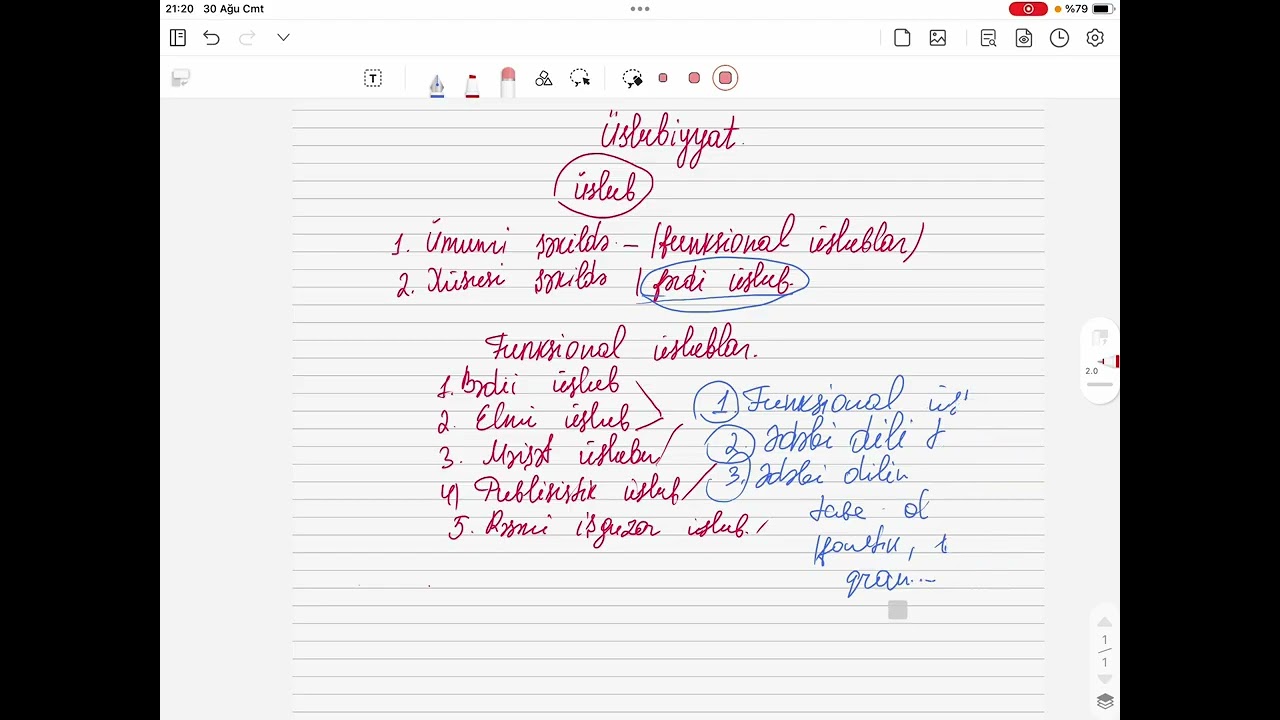 21:20 30 Ağu Cmt
%79
T
Üslubiyyat.
üslub
1. Ümumi şəkildə – (funksional üslublar)
2. Xüsusi şəkildə (fərdi üslub.
Funksional üslublar.
1. Bədii üslub
2. Elmi üslub
3. Məişət üslubu
4) Publisistik üslub
5. Rəsmi işgüzar üslub.
1 Funksional üs
2. Ədəbi dili
3. Ədəbi dilin
tabe ol
qram...
2.0
1
1